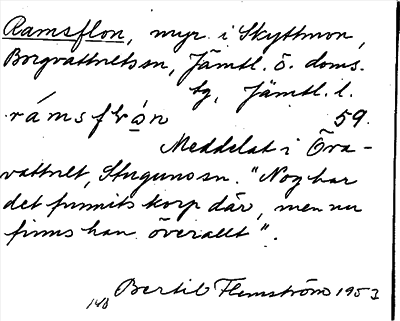 Ramsflon, myr i Skyttmon,
Borgvattnets sn, Jämtl. ö. doms.
tg, Jämtl. l.
rámsflón 59.
Meddelat i Öra-
vattnet, Stuguns sn. "Nog har
det funnits korp där, men nu
finns han överallt".
148 Bertil Flemström 1953